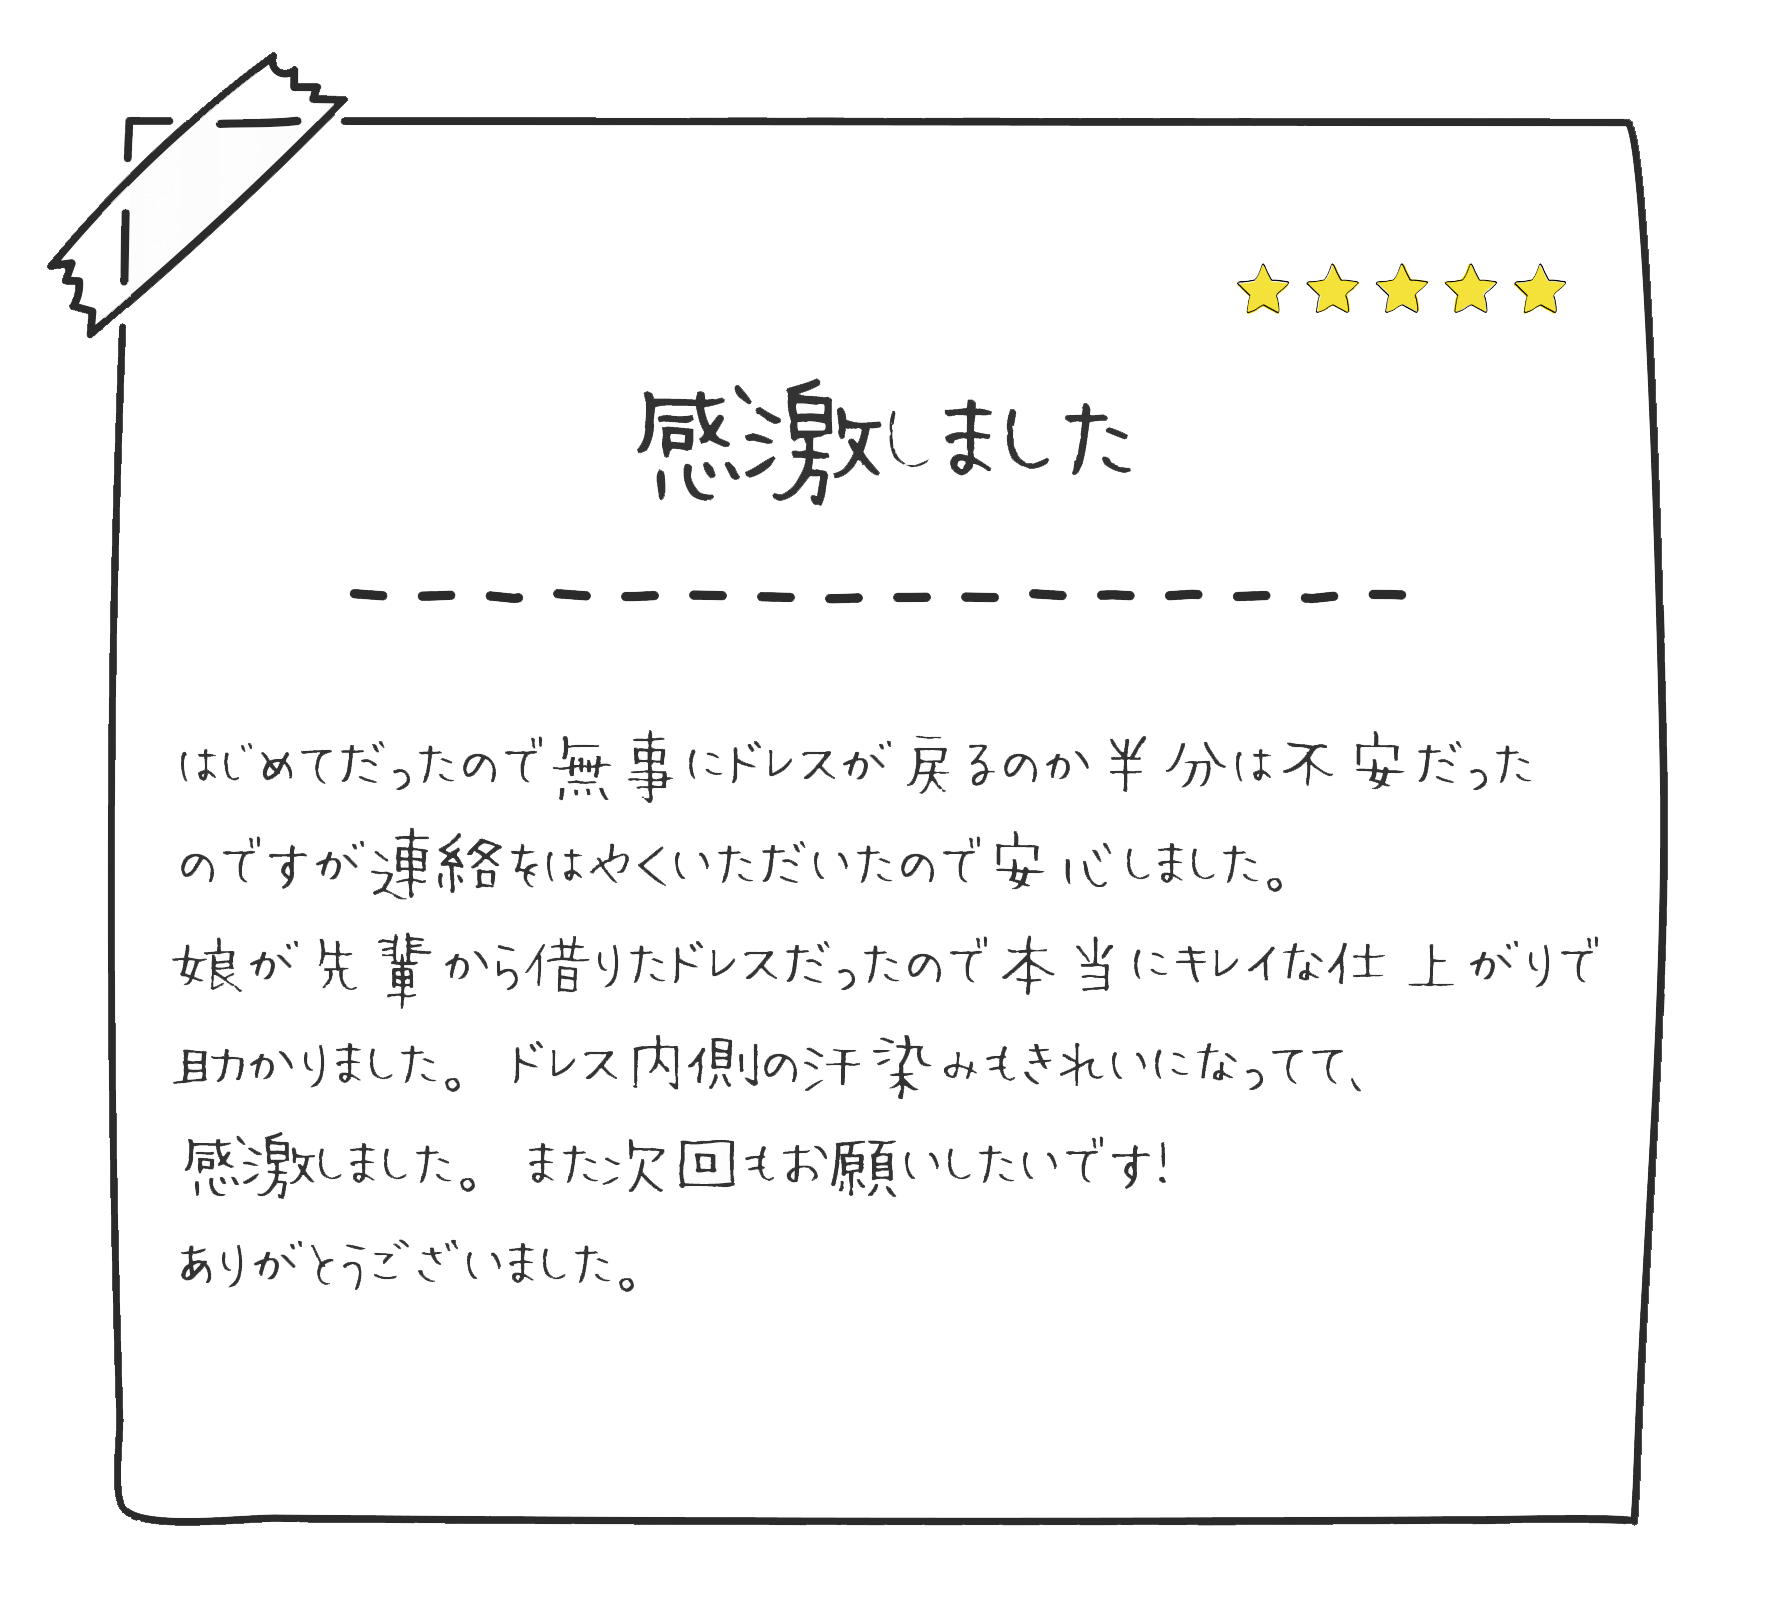 感激しました
はじめてだったので無事にドレスが戻るのか半分は不安だった
のですが連絡をはやくいただいたので安心しました。
娘が先輩から借りたドレスだったので本当にキレイな仕上がりで
助かりました。ドレス内側の汗染みもきれいになってて、
感激しました。また次回もお願いしたいです!
ありがとうございました。